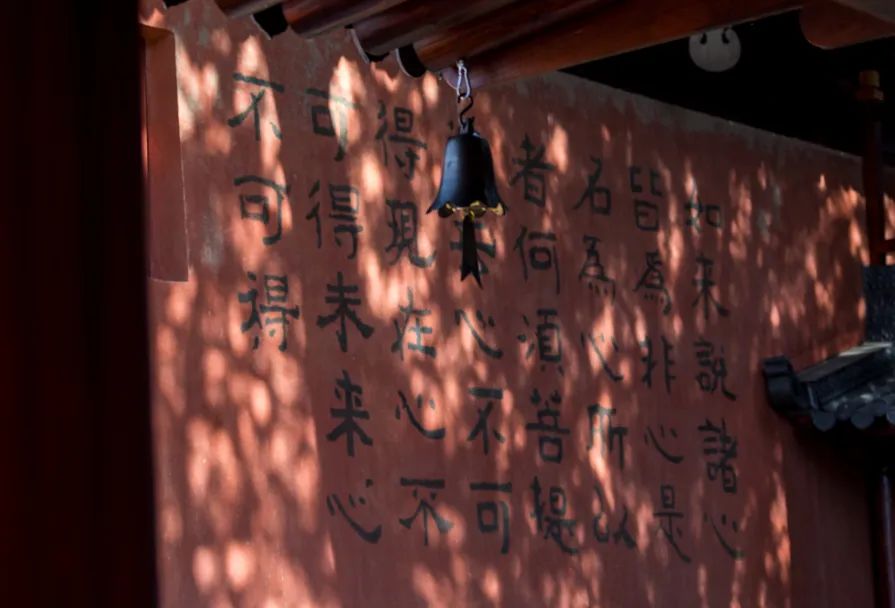 如来説諸心
皆爲非心是
名為心所以
者何須菩提
去心不可
得現在心不
可得未来心
不可得